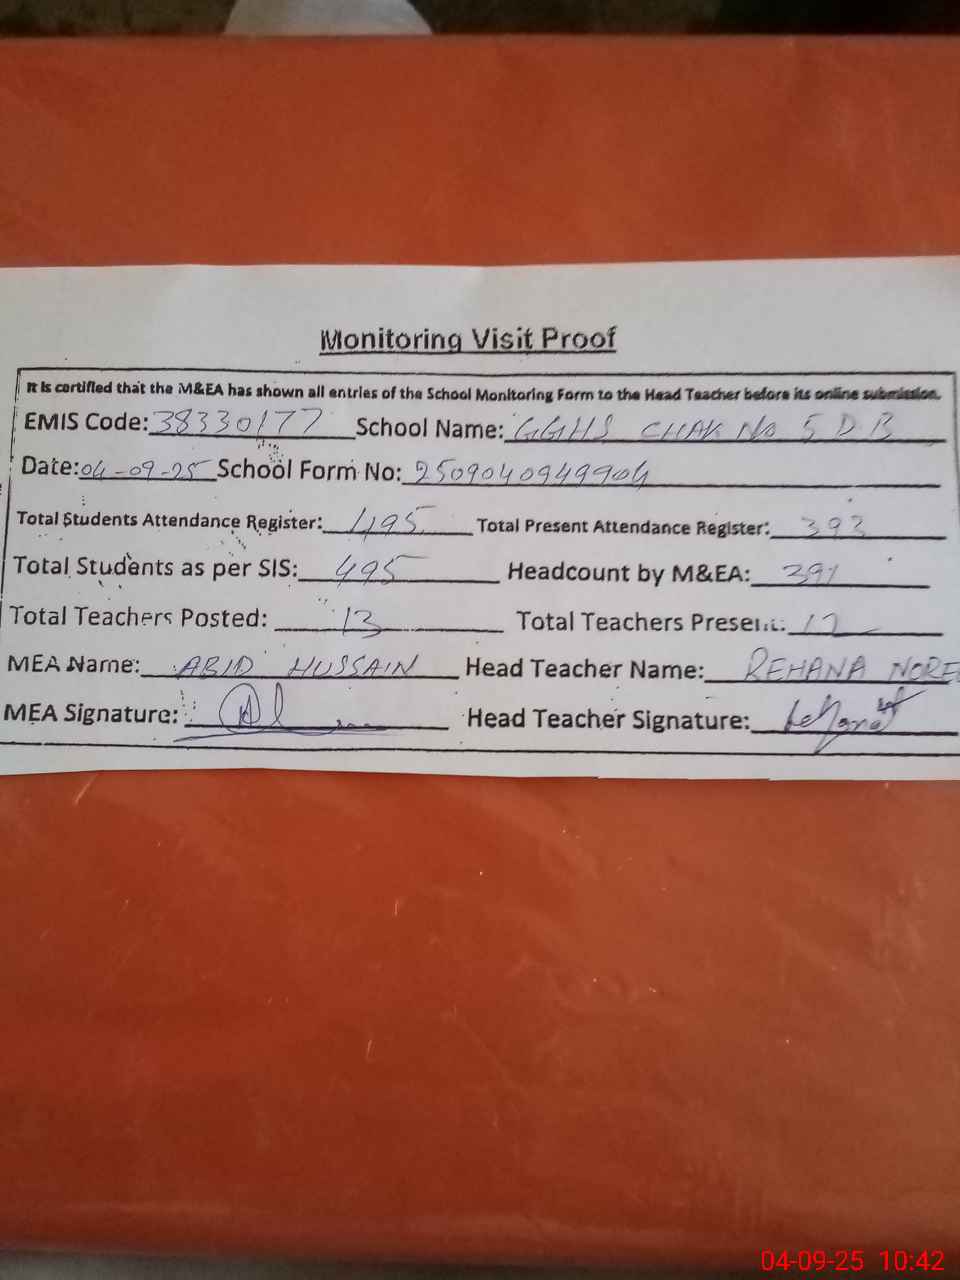 Monitoring Visit Proof
It is certified that the M&EA has shown all entries of the School Monitoring Form to the Head Teacher before its online submission.
EMIS Code: 38330177 School Name: GGHS CHAK No 5 D B
Date: 04-09-25 School Form No: 2509040949904
Total Students Attendance Register: 495 Total Present Attendance Register: 393
Total Students as per SIS: 495 Headcount by M&EA: 391
Total Teachers Posted: 13 Total Teachers Present: 12
MEA Name: ABID HUSSAIN Head Teacher Name: REHANA NORE
MEA Signature: Head Teacher Signature: Rehana
04-09-25 10:42